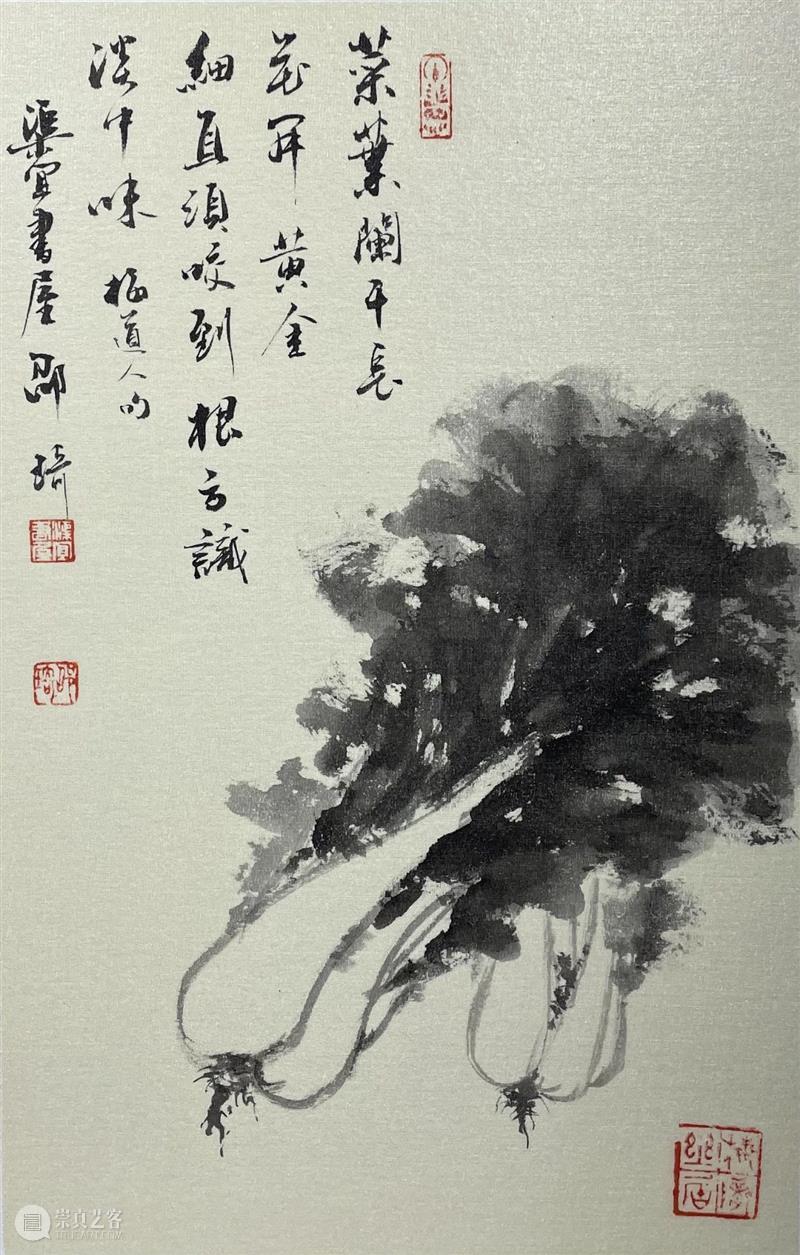 菜葉闌干長
花開黄金
細直須咬到根方識
淡中味 梅道人句
宜書屋 邵琦
邵琦
崇真艺客